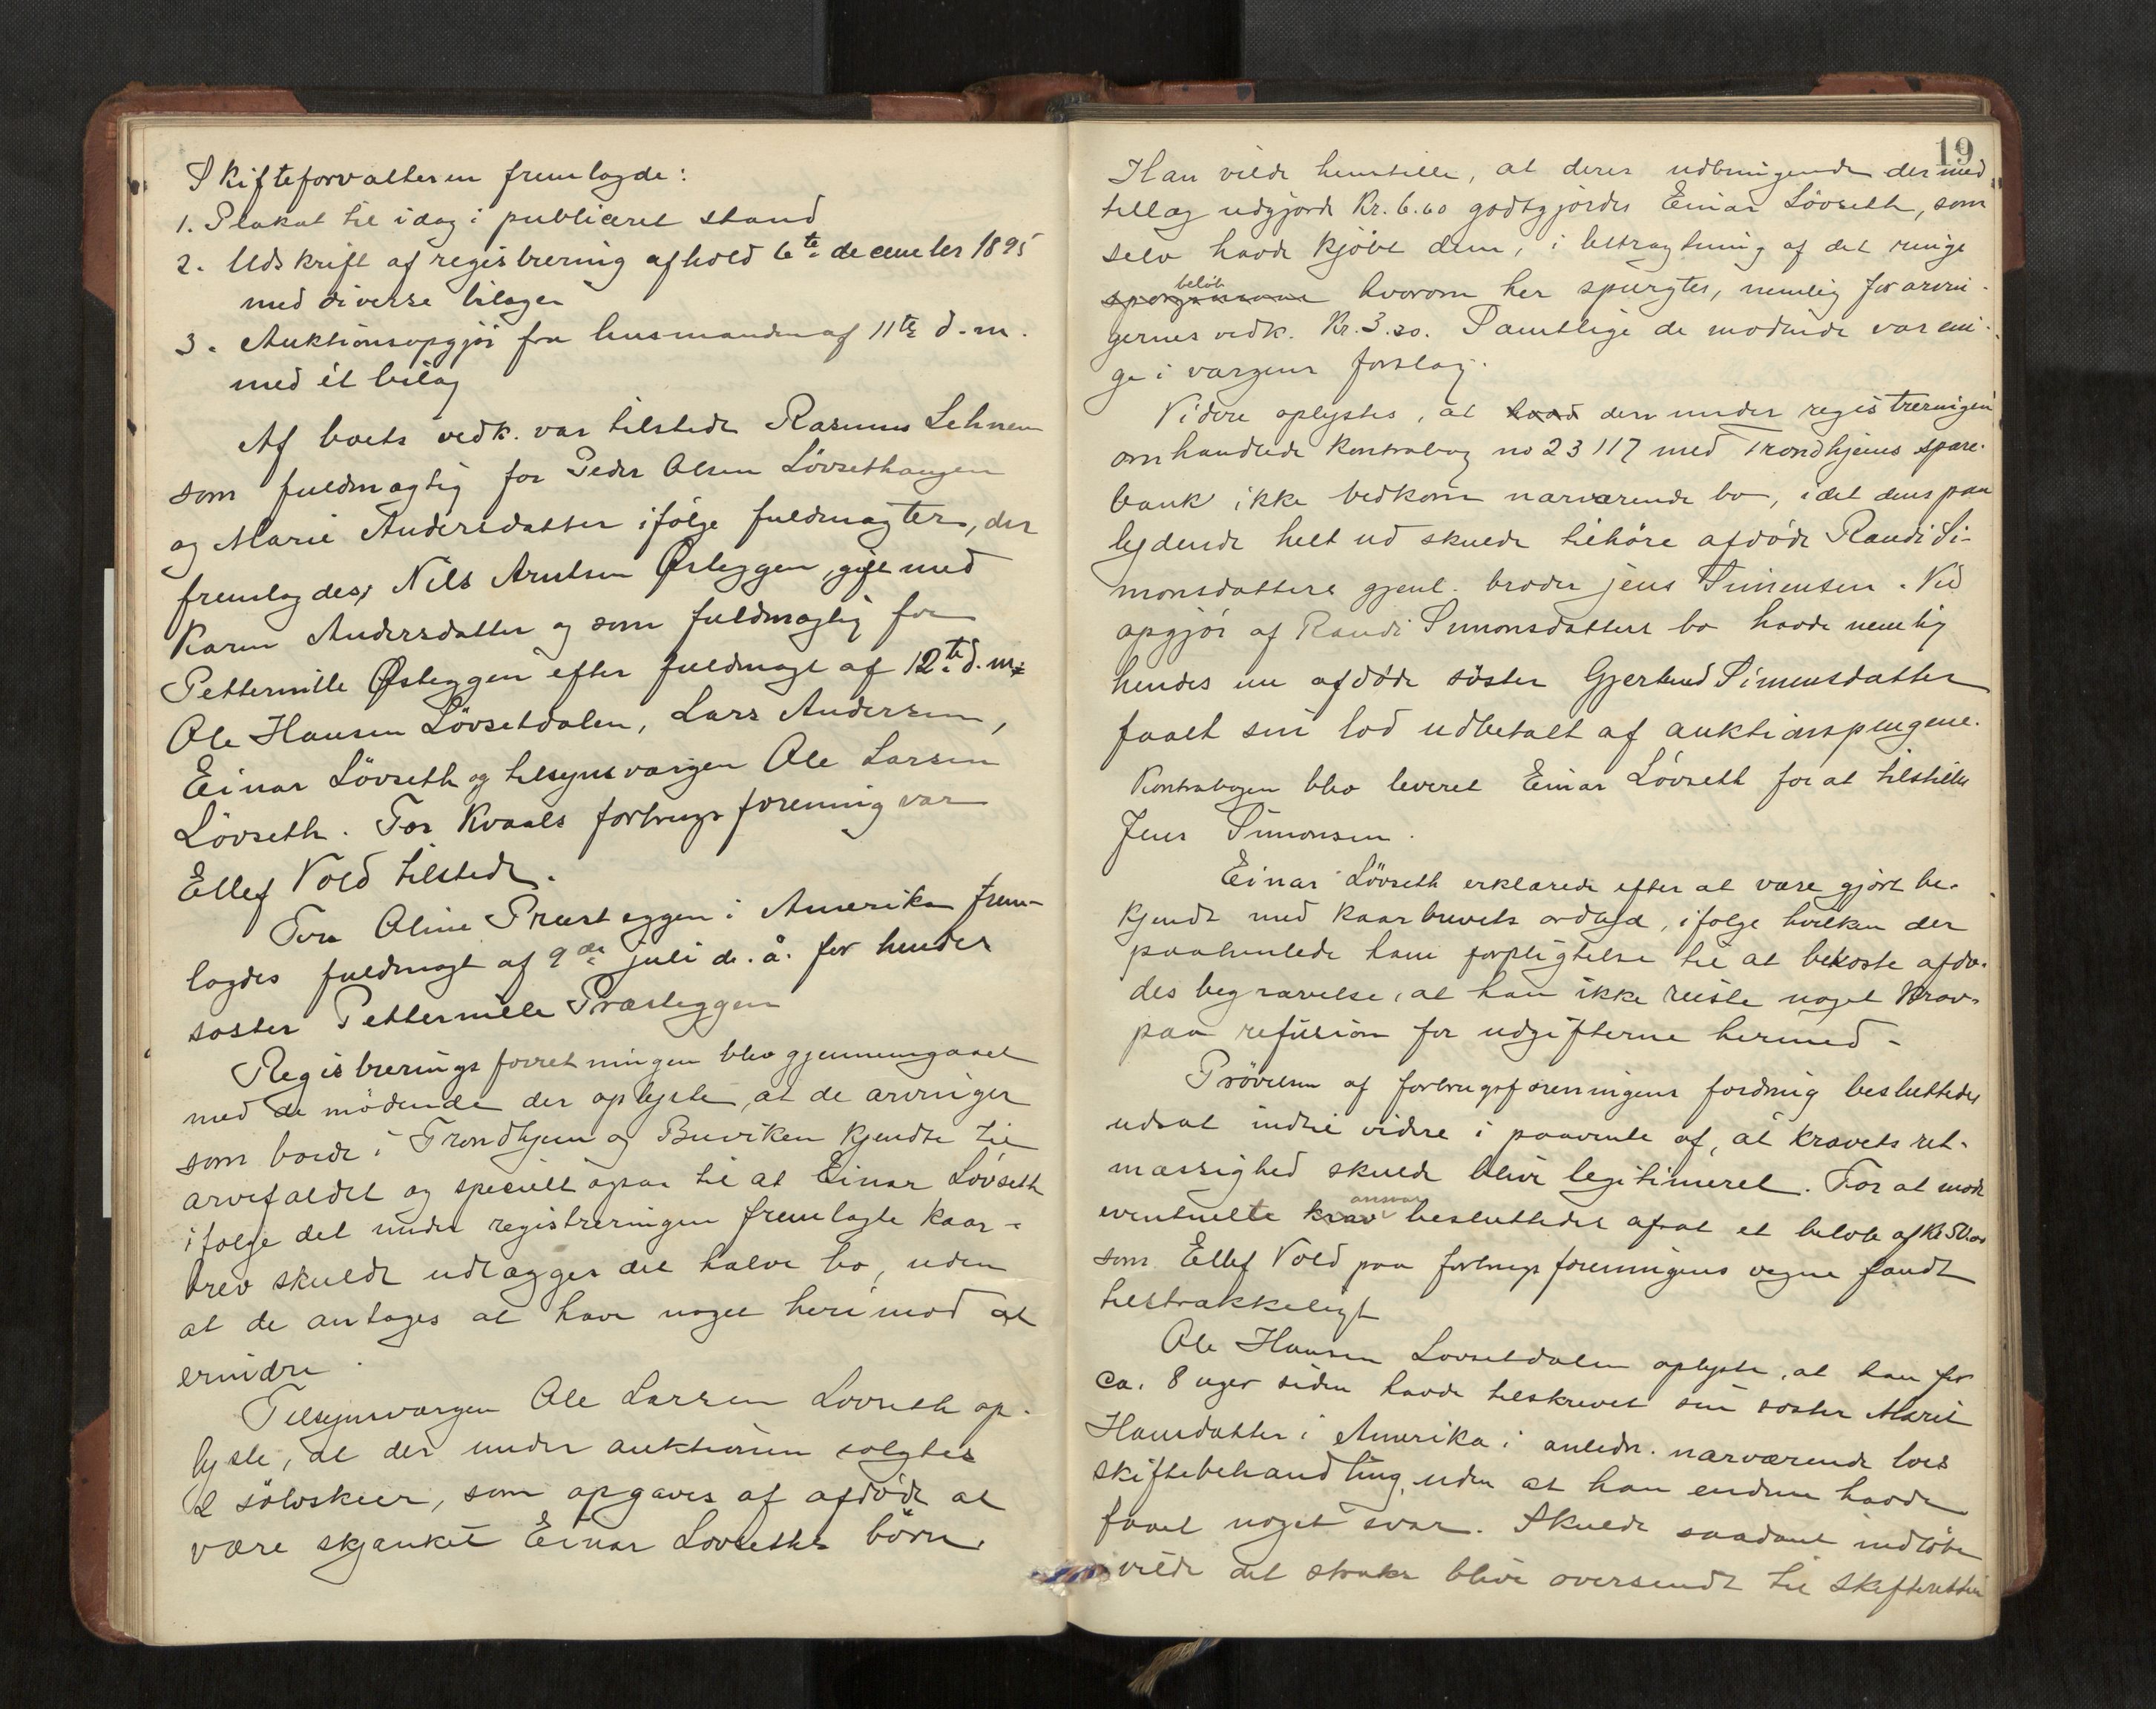 Skifteforvalteren fremlagde:
1. Plakat til idag i publiceret stand
2. Udskrift af registrering afhold 6te december 1895
med diverse bilager
3. Auktionsopgjör fra lensmanden af 11te d.m.
med ét bilag
Af boets vedk. var tilstede Rasmus Lehnem
som fuldmægtig for Peder Olsen Lövsethaugen
og Marie Andersdatter ifölge fuldmagter, der
fremlagdes, Nils Arntsen Østeggen, gift med
Karen Andersdatter og som fuldmægtig for
Pettermille Østeggen efter fuldmagt af 12te d.m.
Ole Hansen Lövsetdalen, Lars Andersen,
Einar Lövseth og tilsynsværgen Ole Larsen
Lövseth. For Kvaals forbrugsforening var
Ellef Vold tilstede.
Fra Oline Præsteggen i Amerika frem-
lagdes fuldmagt af 9de juli d. å. for hendes
søster Pettermille Præsteggen
Registreringsforretningen blev gjennemgaaet
med de mödende der oplyste, at de arvinger
som boede i Trondhjem og Buviken kjendte til
arvefaldet og specielt ogsaa til at Einar Lövseth
ifølge det under registreringen fremlagte kaar-
brev skulde udlægges det halve bo, uden
at de antages at have noget herimod at
erindre.
Tilsynsværgen Ole Larsen Lovseth op-
lyste, at der under auktionen solgtes
2 sölvskeer, som opgaves af afdöde at
være skjænket Einar Lovseths börn.
19
Han vilde henstille, at deres udbringende der med
tillæg udgjorde Kr. 6.60 godtgjordes Einar Lövseth, som
selv havde kjöbt dem, i betragtning af det ringe
beløb
hvorom her spurgtes, nemlig for arvin-
gernes vedk. Kr. 3.30. Samtlige de mødende var eni-
ge i værgens forslag.
Videre oplystes, at hvad den under registreringen
omhandlede kontrabog no 23117 med Trondhjems spare-
bank ikke vedkom nærværende bo, idet dens paa-
lydende helt ud skulde tilhöre afdöde Randi Si-
monsdatters gjenl. broder Jens Simensen. Ved
opgjör af Randi Simonsdatters bo havde nemlig
hendes nu afdöde söster Gjertrud Simensdatter
faaet sin lod udbetalt af auktionspengene.
Kontrabogen blev leveret Einar Lövseth for at tilstille
Jens Simonsen.
Einar Lövseth erklærede efter at være gjort be-
kjendt med kaarbrevets ordlyd, ifølge hvilken der
paahvilede ham forpligtelse til at bekoste afdø-
des begravelse, at han ikke reiste noget krav
paa refusion for udgifterne hermed.
Prövelsen af forbrugsforeningens fordring besluttedes
udsat indtil videre i paavente af, at kravets ret-
mæssighed skulde blive legitimeret. For at møde
ansvar
eventuelle krav besluttedes afsat et beløb af Kr 50.00
som Ellef Vold paa forbrugsforeningens vegne fandt
tilstrækkeligt
Ole Hansen Lovsetdalen oplyste, at han for
ca. 8 uger siden havde tilskrevet sin søster Marit
Hansdatter i Amerika i anledn. nærværende boes
skiftebehandling, uden at han endnu havde
faaet noget svar. Skulde saadant indlöbe
vilde det straks blive oversendt til skifteretten